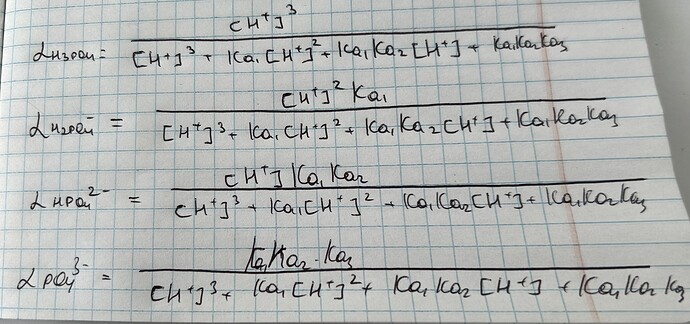 αH₃PO₄ = [H⁺]³ / [H⁺]³ + Ka₁[H⁺]² + Ka₁Ka₂[H⁺] + Ka₁Ka₂Ka₃
αH₂PO₄⁻ = [H⁺]² Ka₁ / [H⁺]³ + Ka₁[H⁺]² + Ka₁Ka₂[H⁺] + Ka₁Ka₂Ka₃
αHPO₄²⁻ = [H⁺] Ka₁Ka₂ / [H⁺]³ + Ka₁[H⁺]² + Ka₁Ka₂[H⁺] + Ka₁Ka₂Ka₃
αPO₄³⁻ = Ka₁Ka₂·Ka₃ / [H⁺]³ + Ka₁[H⁺]² + Ka₁Ka₂[H⁺] + Ka₁Ka₂Ka₃